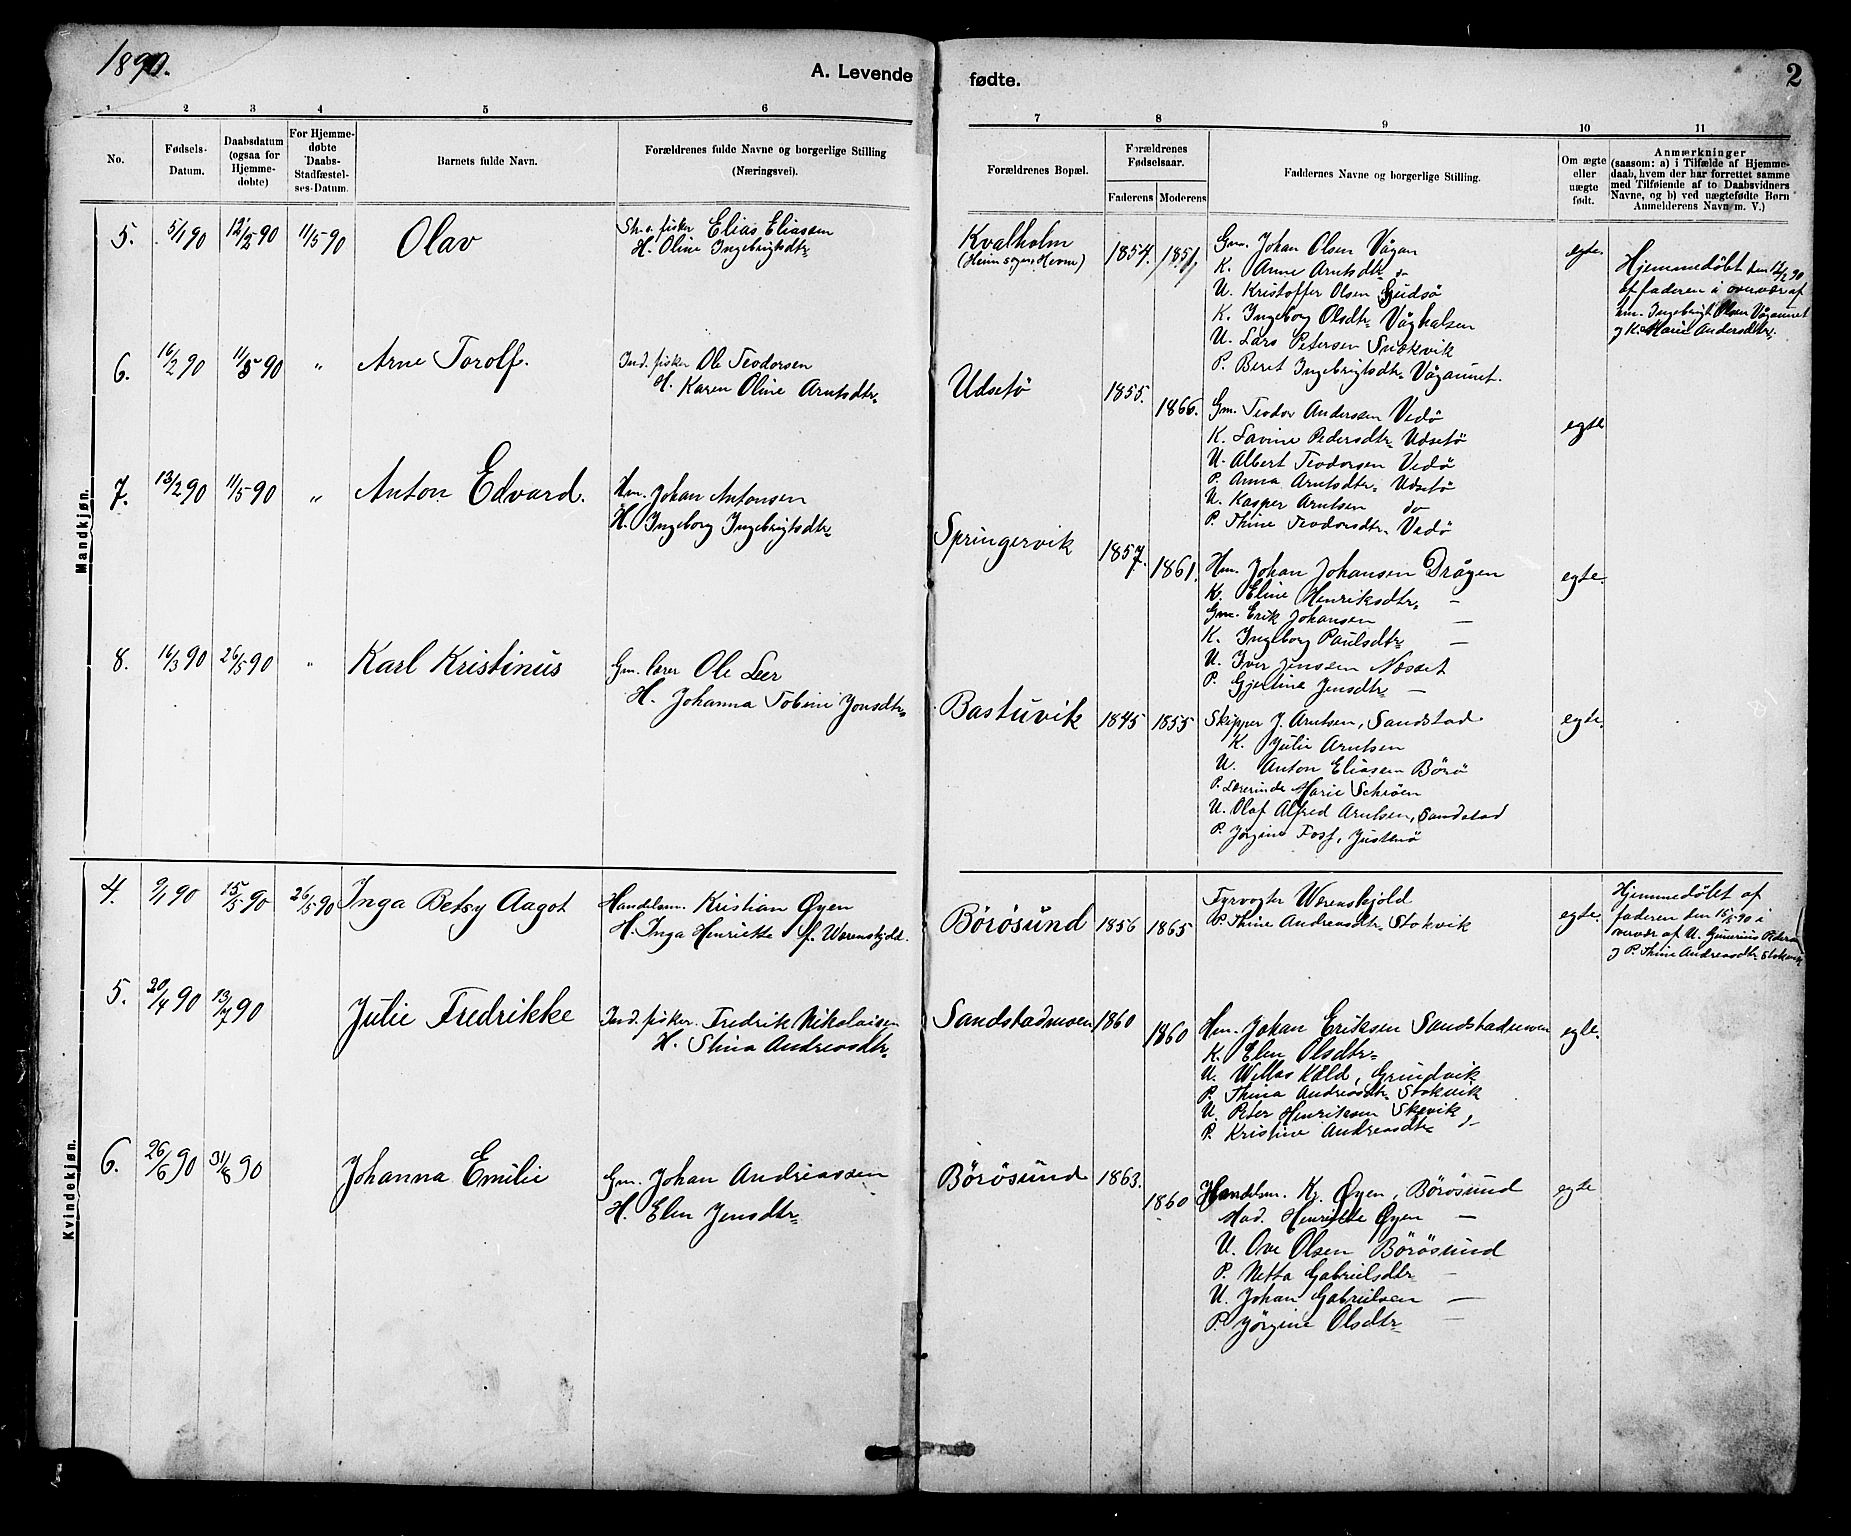 1890.
A. Levende fødte.
2
1 2 3 4 5 6 7 8 9 10 11
No.
Fødsels-Datum.
Daabsdatum (ogsaa for Hjemme-døbte)
For Hjemme-døbte Daabs-Stadfæstel-ses-Datum.
Barnets fulde Navn.
Forældrenes fulde Navne og borgerlige Stilling (Næringsvei).
Forældrenes Bopæl.
Forældrenes Fødselsaar.
Faderens Moderens
Faddernes Navne og borgerlige Stilling.
Om ægte eller uægte født.
Anmærkninger
(saasom: a) i Tilfælde af Hjemme-
daab, hvem der har forrettet samme
med Tilføiende af to Daabsvidners
Navne, og b) ved uægtefødte Børn
Anmelderens Navn m. V.)
Mandkjøn.
5. 5/1 90 12/2 90 11/5 90 Olav
Str. o. fisker Elias Eliassen
H. Oline Ingebrigtsdtr
Kvalholm
(Heim sogn, Hevne)
1854. 1851.
Gm. Johan Olsen Vågan
K. Anne Arntsdtr do
U. Kristoffer Olsen Gjudsø
K. Ingeborg Olsdtr Våghalsen
U. Lars Petersen Snekvik
P. Beret Ingebrigtsdtr Vågaunet.
egte
Hjemmedøbt den 12/2 90
af faderen i overvær af
hm. Ingebrigt Olsen Vågaunet
og K. Marie Andersdtr.
6. 16/2 90 11/5 90 " Arne Torolf.
Ind. fisker Ole Teodorsen
H. Karen Oline Arntsdtr
Udsetø 1855. 1866.
Gm. Teodor Anderssen Vedø
K. Lavine Pedersdtr Udsetø
U. Albert Teodorsen Vedø
P. Anna Arntsdtr Udsetø
U. Kasper Arntsen do
P. Thine Teodorsdtr Vedø
egte
7. 13/2 90 11/5 90 " Anton Edvard.
Hm. Johan Antonsen
H. Ingeborg Ingebrigtsdtr
Springervik 1857. 1861.
Hm. Johan Johansen Drågen
K. Eline Henriksdtr —
Gm. Erik Johansen —
K. Ingeborg Paulsdtr —
U. Iver Jenssen Nesset
P. Gjertine Jensdtr —
egte.
8. 16/3 90 26/5 90 " Karl Kristinus
Gm. lærer Ole Leer
H. Johanna Tobine Jonsdtr
Bastuvik 1845 1855
Skipper J. Arntsen, Sandstad
K. Julie Arntsen
U. Anton Eliasen Börö
P. Lærerinde Marie Schrøen
U. Olaf Alfred Arntsen, Sandstad
P. Jørgine Foss, Justenø
egte.
Kvindekjøn.
4. 9/1 90 15/5 90 26/5 90 Inga Betsy Aagot
Handelsm. Kristian Øyen
H. Inga Henriette f. Werenskjold.
Börösund 1856 1865
Fyrvogter Werenskjold
P. Thine Andreasdtr Stokvik
egte.
Hjemmedøbt af
faderen den 15/5 90 i
overvær af U. Gunerius Peterson
og P. Thine Andreasdtr Stokvik
5. 20/4 90 13/7 90 Julie Fredrikke
Ind. fisker. Fredrik Nikolaisen
H. Stina Andreasdtr
Sandstadmoen 1860 1860
Hm. Johan Eriksen Sandstadmoen
K. Elen Olsdtr
U. Willas Kåld, Grindvik
P. Thina Andreasdtr Stokvik
U. Peter Henriksen Skevik
P. Kristine Andreasdtr
egte.
6. 26/6 90 31/8 90 Johanna Emilie
Gm. Johan Andreassen
H. Elen Jensdtr
Börösund 1863. 1860
Handelsm. Kr. Øyen, Börösund
Mad. Henriette Øyen —
U. Ove Olsen Börösund
P. Netta Gabrielsdtr —
U. Johan Gabrielsen —
P. Jørgine Olsdtr —
egte